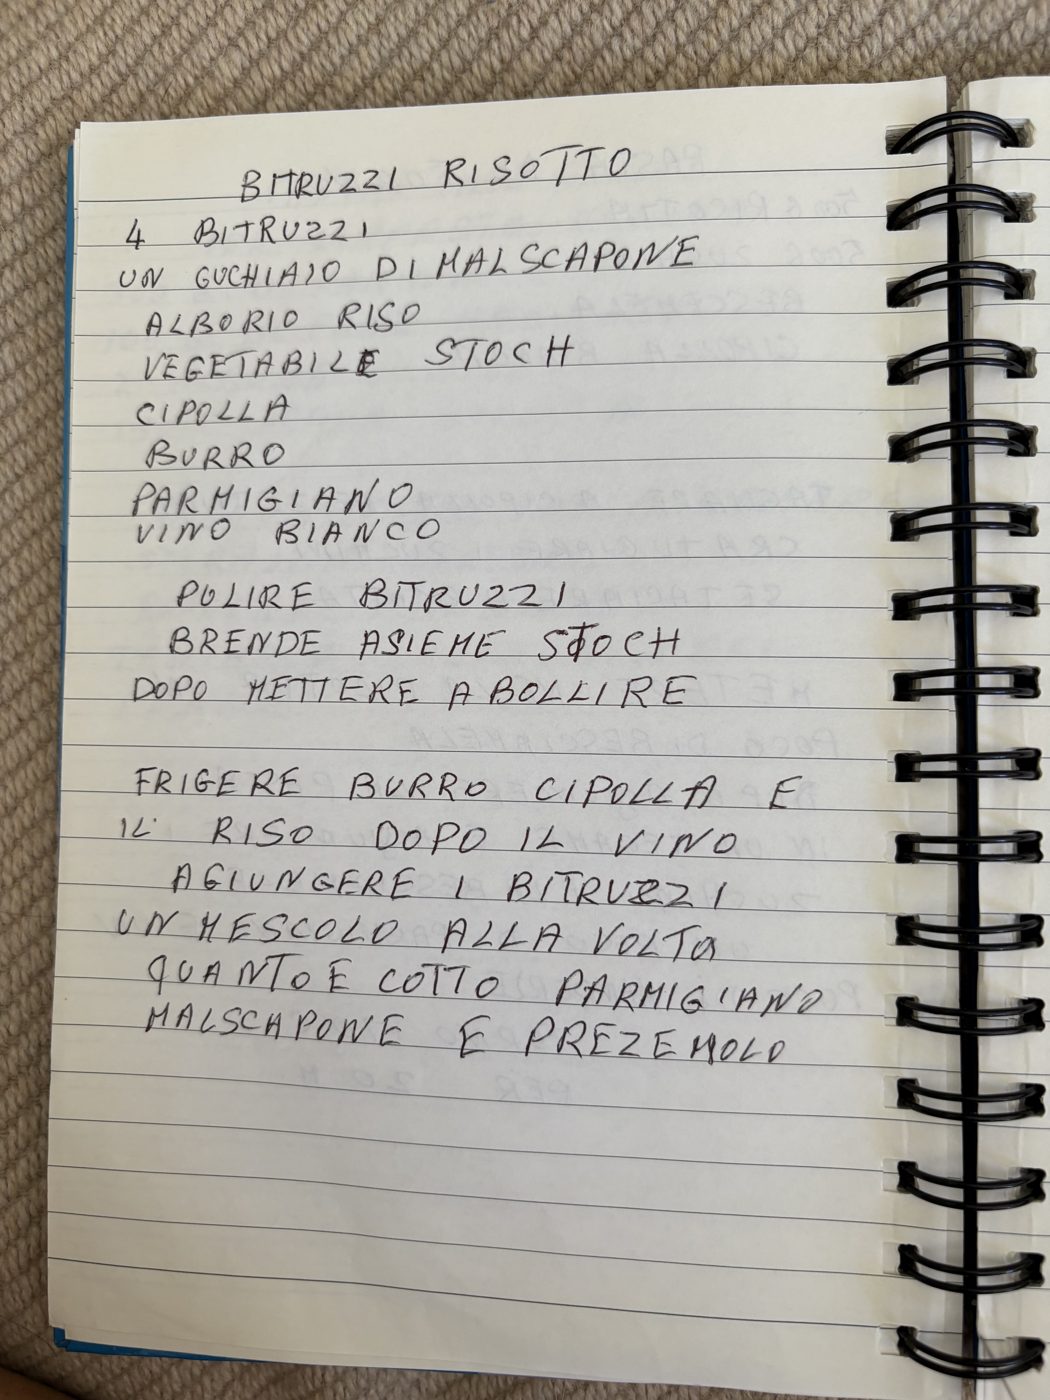 BITRUZZI RISOTTO
4 BITRUZZI
UN GUCHIAIO DI MALSCAPONE
ALBORIO RISO
VEGETABILE STOCH
CIPOLLA
BURRO
PARMIGIANO
VINO BIANCO
PULIRE BITRUZZI
BRENDE ASIEME STOCH
DOPO METTERE A BOLLIRE
FRIGERE BURRO CIPOLLA E
IL RISO DOPO IL VINO
AGIUNGERE I BITRUZZI
UN MESCOLO ALLA VOLTA
QUANTO E COTTO PARMIGIANO
MALSCAPONE E PREZEMOLO